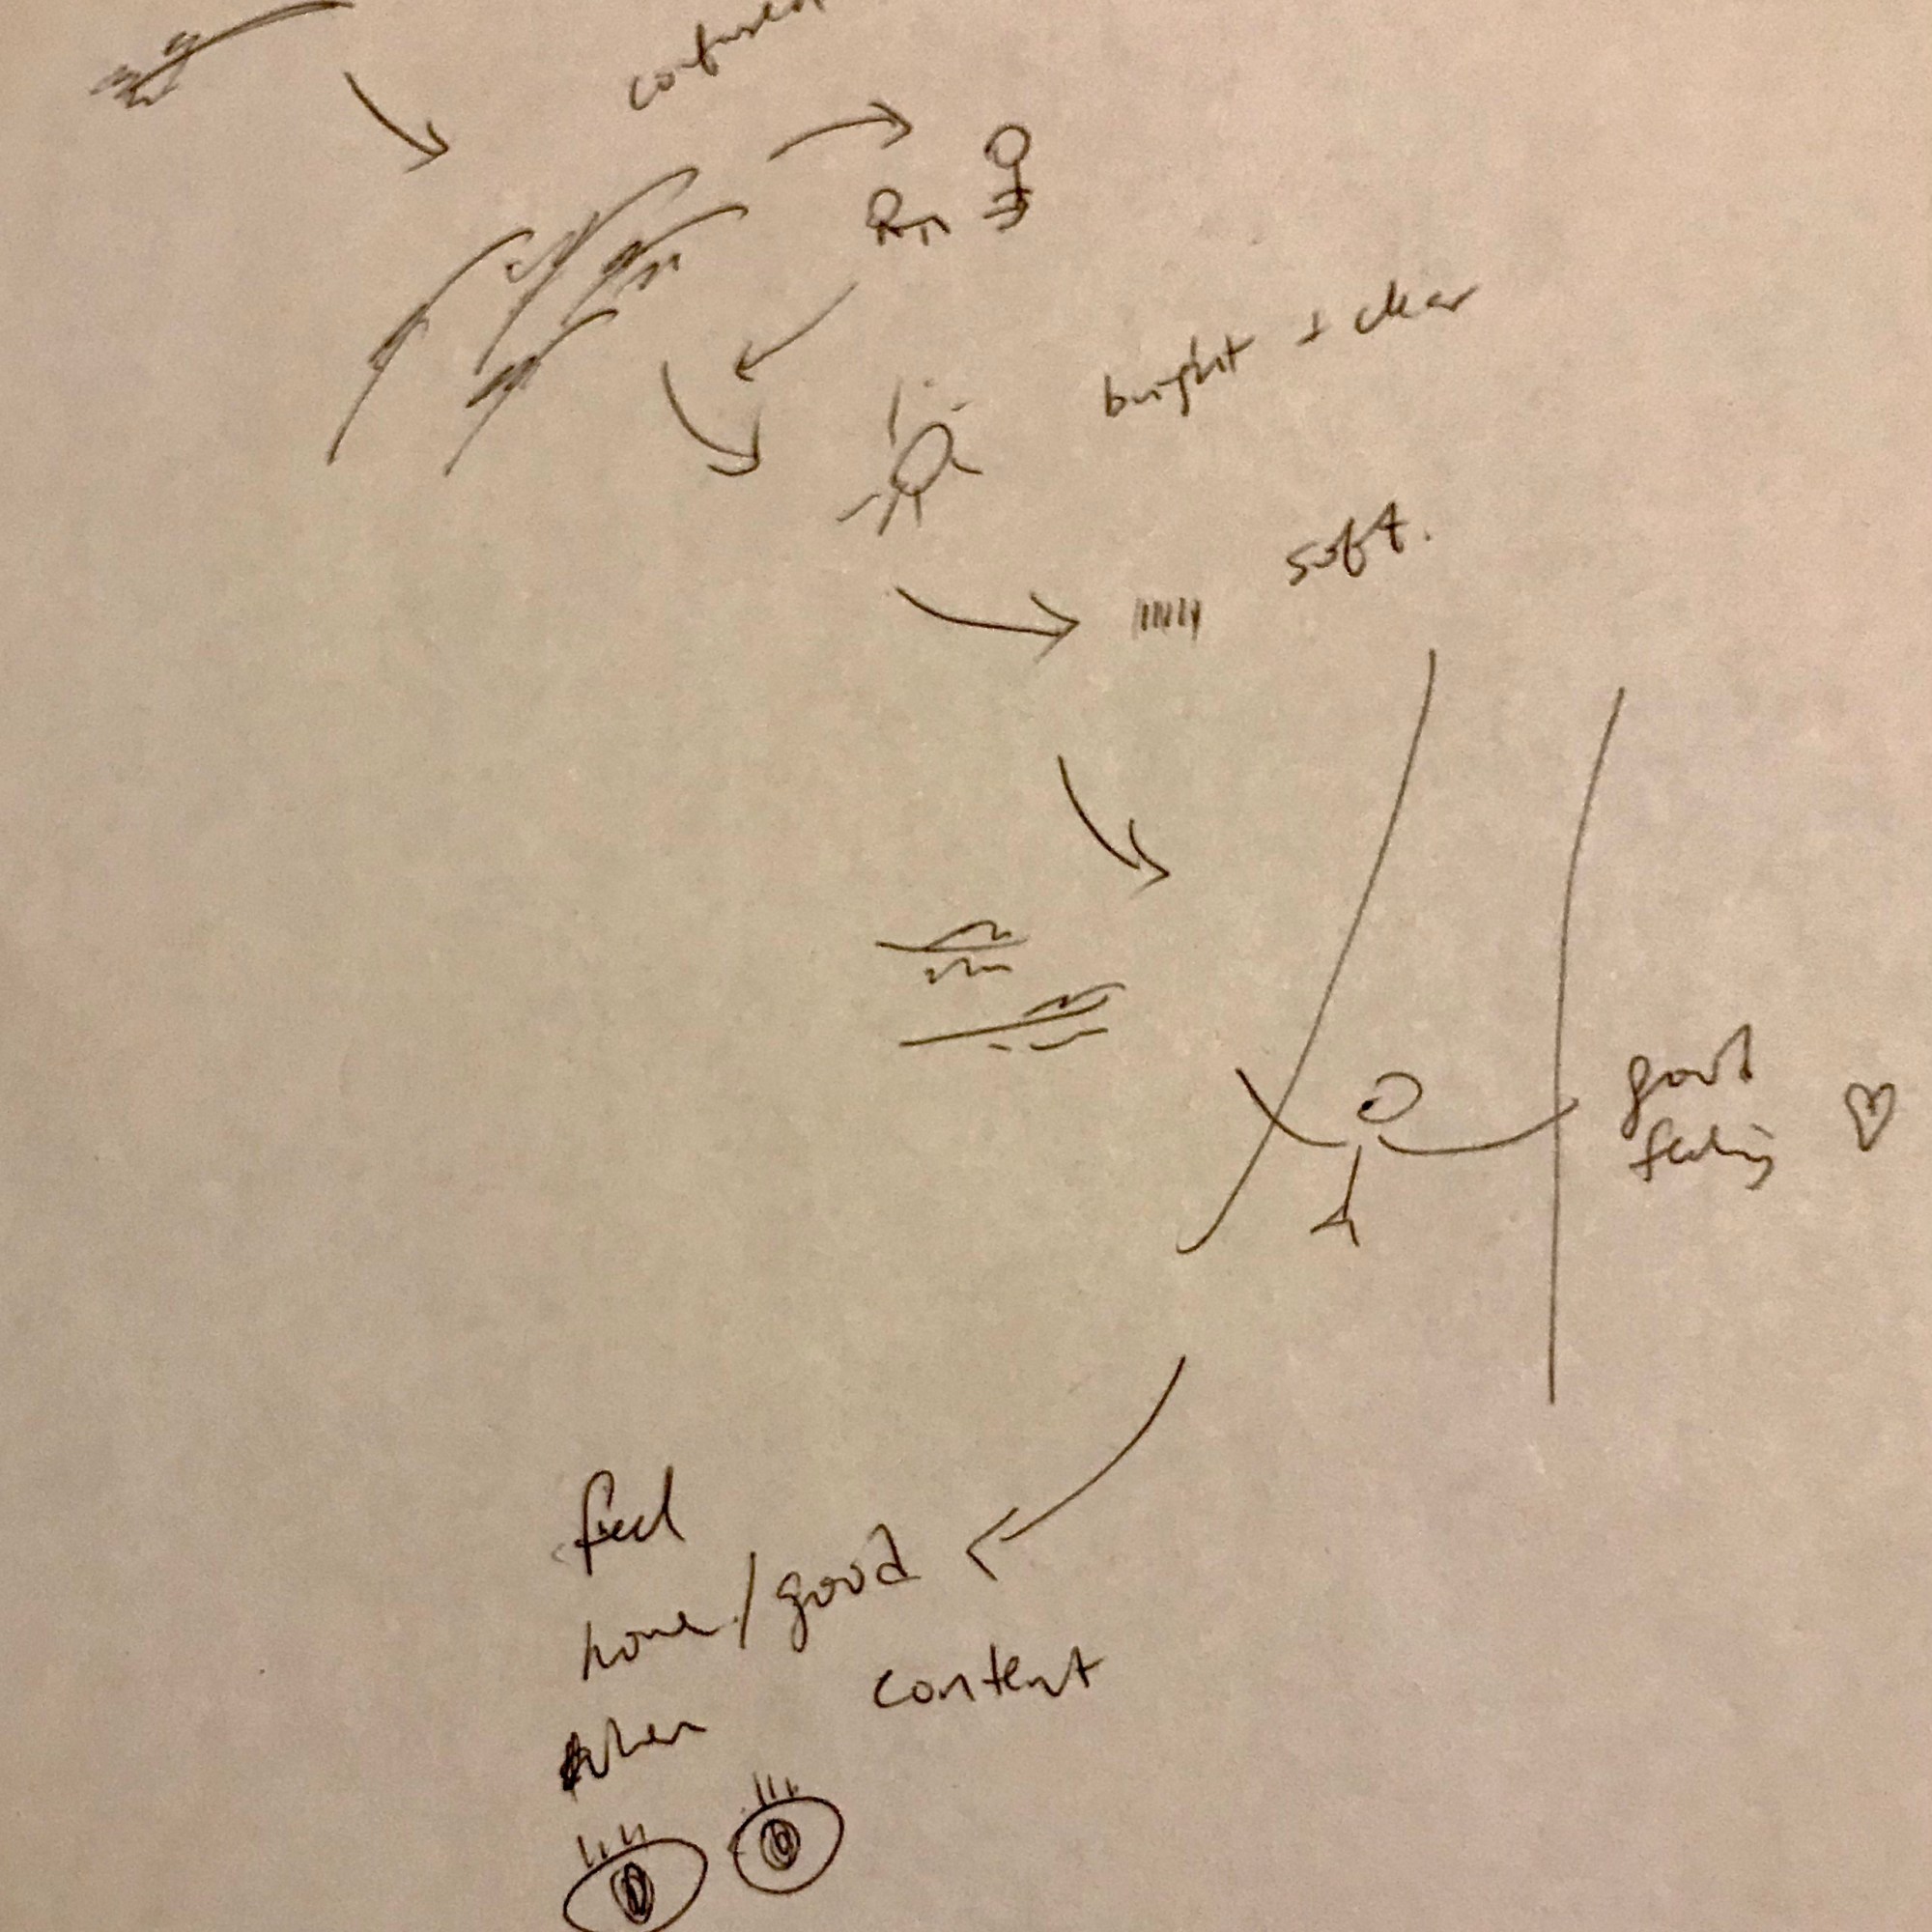 confused
bright + clear
soft.
good
feeling
feel
home/good
when
content